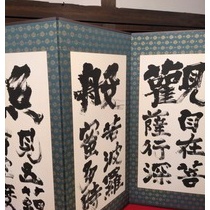 觀自在菩
薩行深
般若波羅
蜜多時
見五蘊